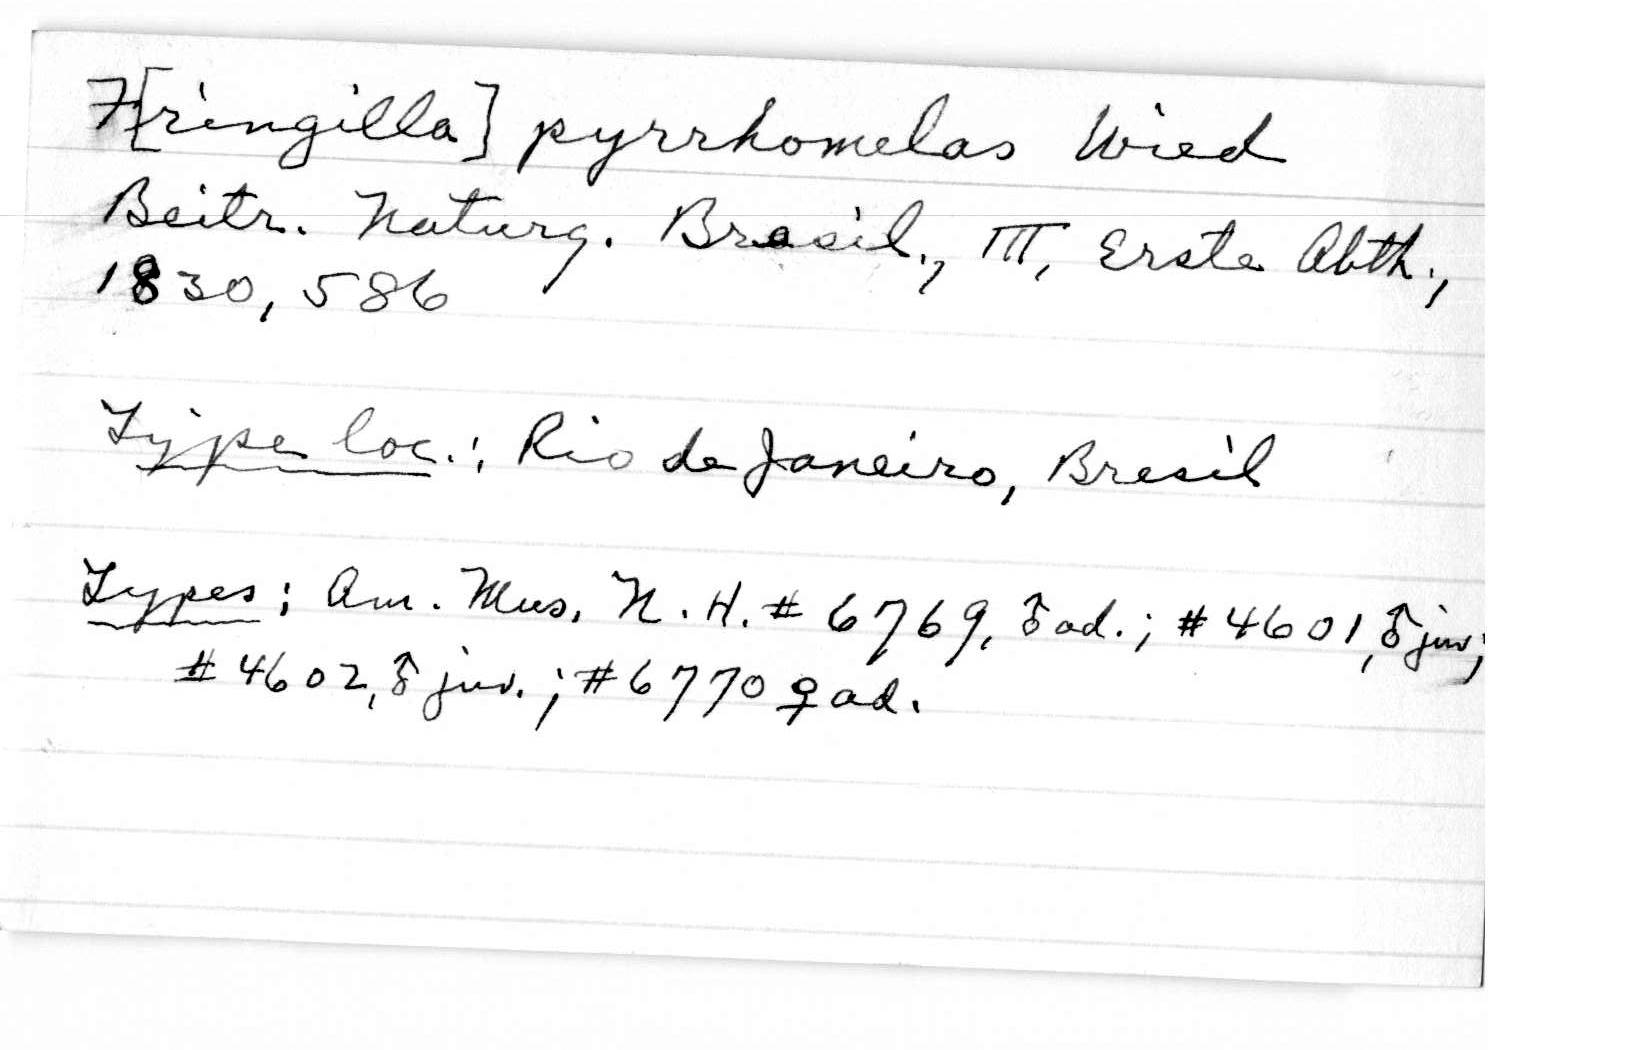 F[ringilla] pyrrhomelas Wied
Beitr. Naturg. Brasil., III, Erste Abth.,
1830, 586
Type loc.: Rio de Janeiro, Bresil
Types: Am. Mus. N. H. # 6769, ♂ ad.; # 4601, ♂ juv;
# 4602, ♂ juv.; # 6770 ♀ ad.